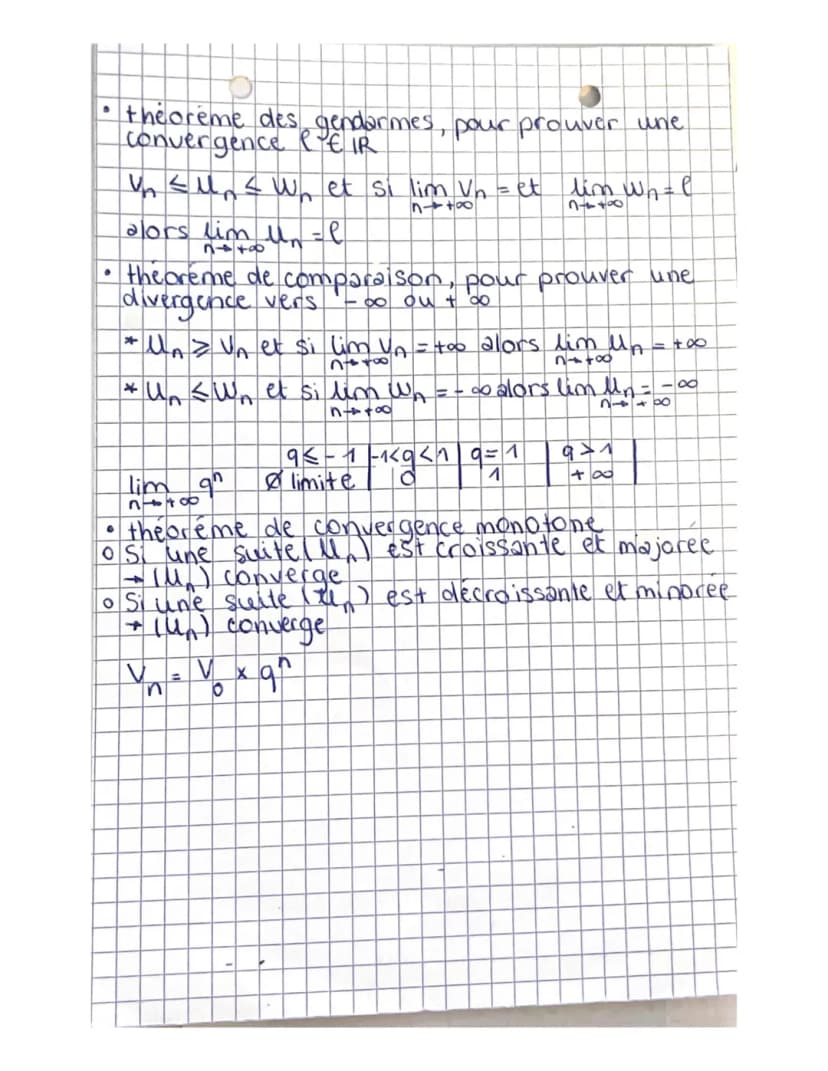 • théorème des gendarmes, pour prouver une
convergence l ∈ IR
Vn ≤ Un ≤ Wn et si lim Vn = et lim Wn = l
n→+∞ n→+∞
alors lim Un = l
n→+∞
• théorème de comparaison, pour prouver une
divergence vers -∞ ou +∞
* Un ≥ Vn et si lim Vn = +∞ alors lim Un = +∞
n→+∞ n→+∞
* Un ≤ Wn et si lim Wn = -∞ alors lim Un = -∞
n→+∞ n→+∞
q ≤ -1 | -1<q<1 | q = 1 | q > 1
lim qⁿ Ø limite | 0 | 1 | +∞
n→+∞
• théorème de convergence monotone
o Si une suite (Un) est croissante et majorée
→ (Un) converge
o Si une suite (Un) est décroissante et minorée
→ (Un) converge
Vn = V0 × qⁿ